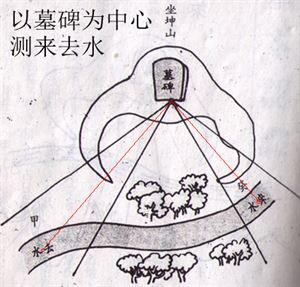 以墓碑为中心
测来去水
坐坤山
墓碑
甲
水去
癸
水來